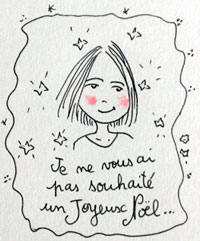 Je ne vous ai
pas souhaité
un Joyeux Noël...